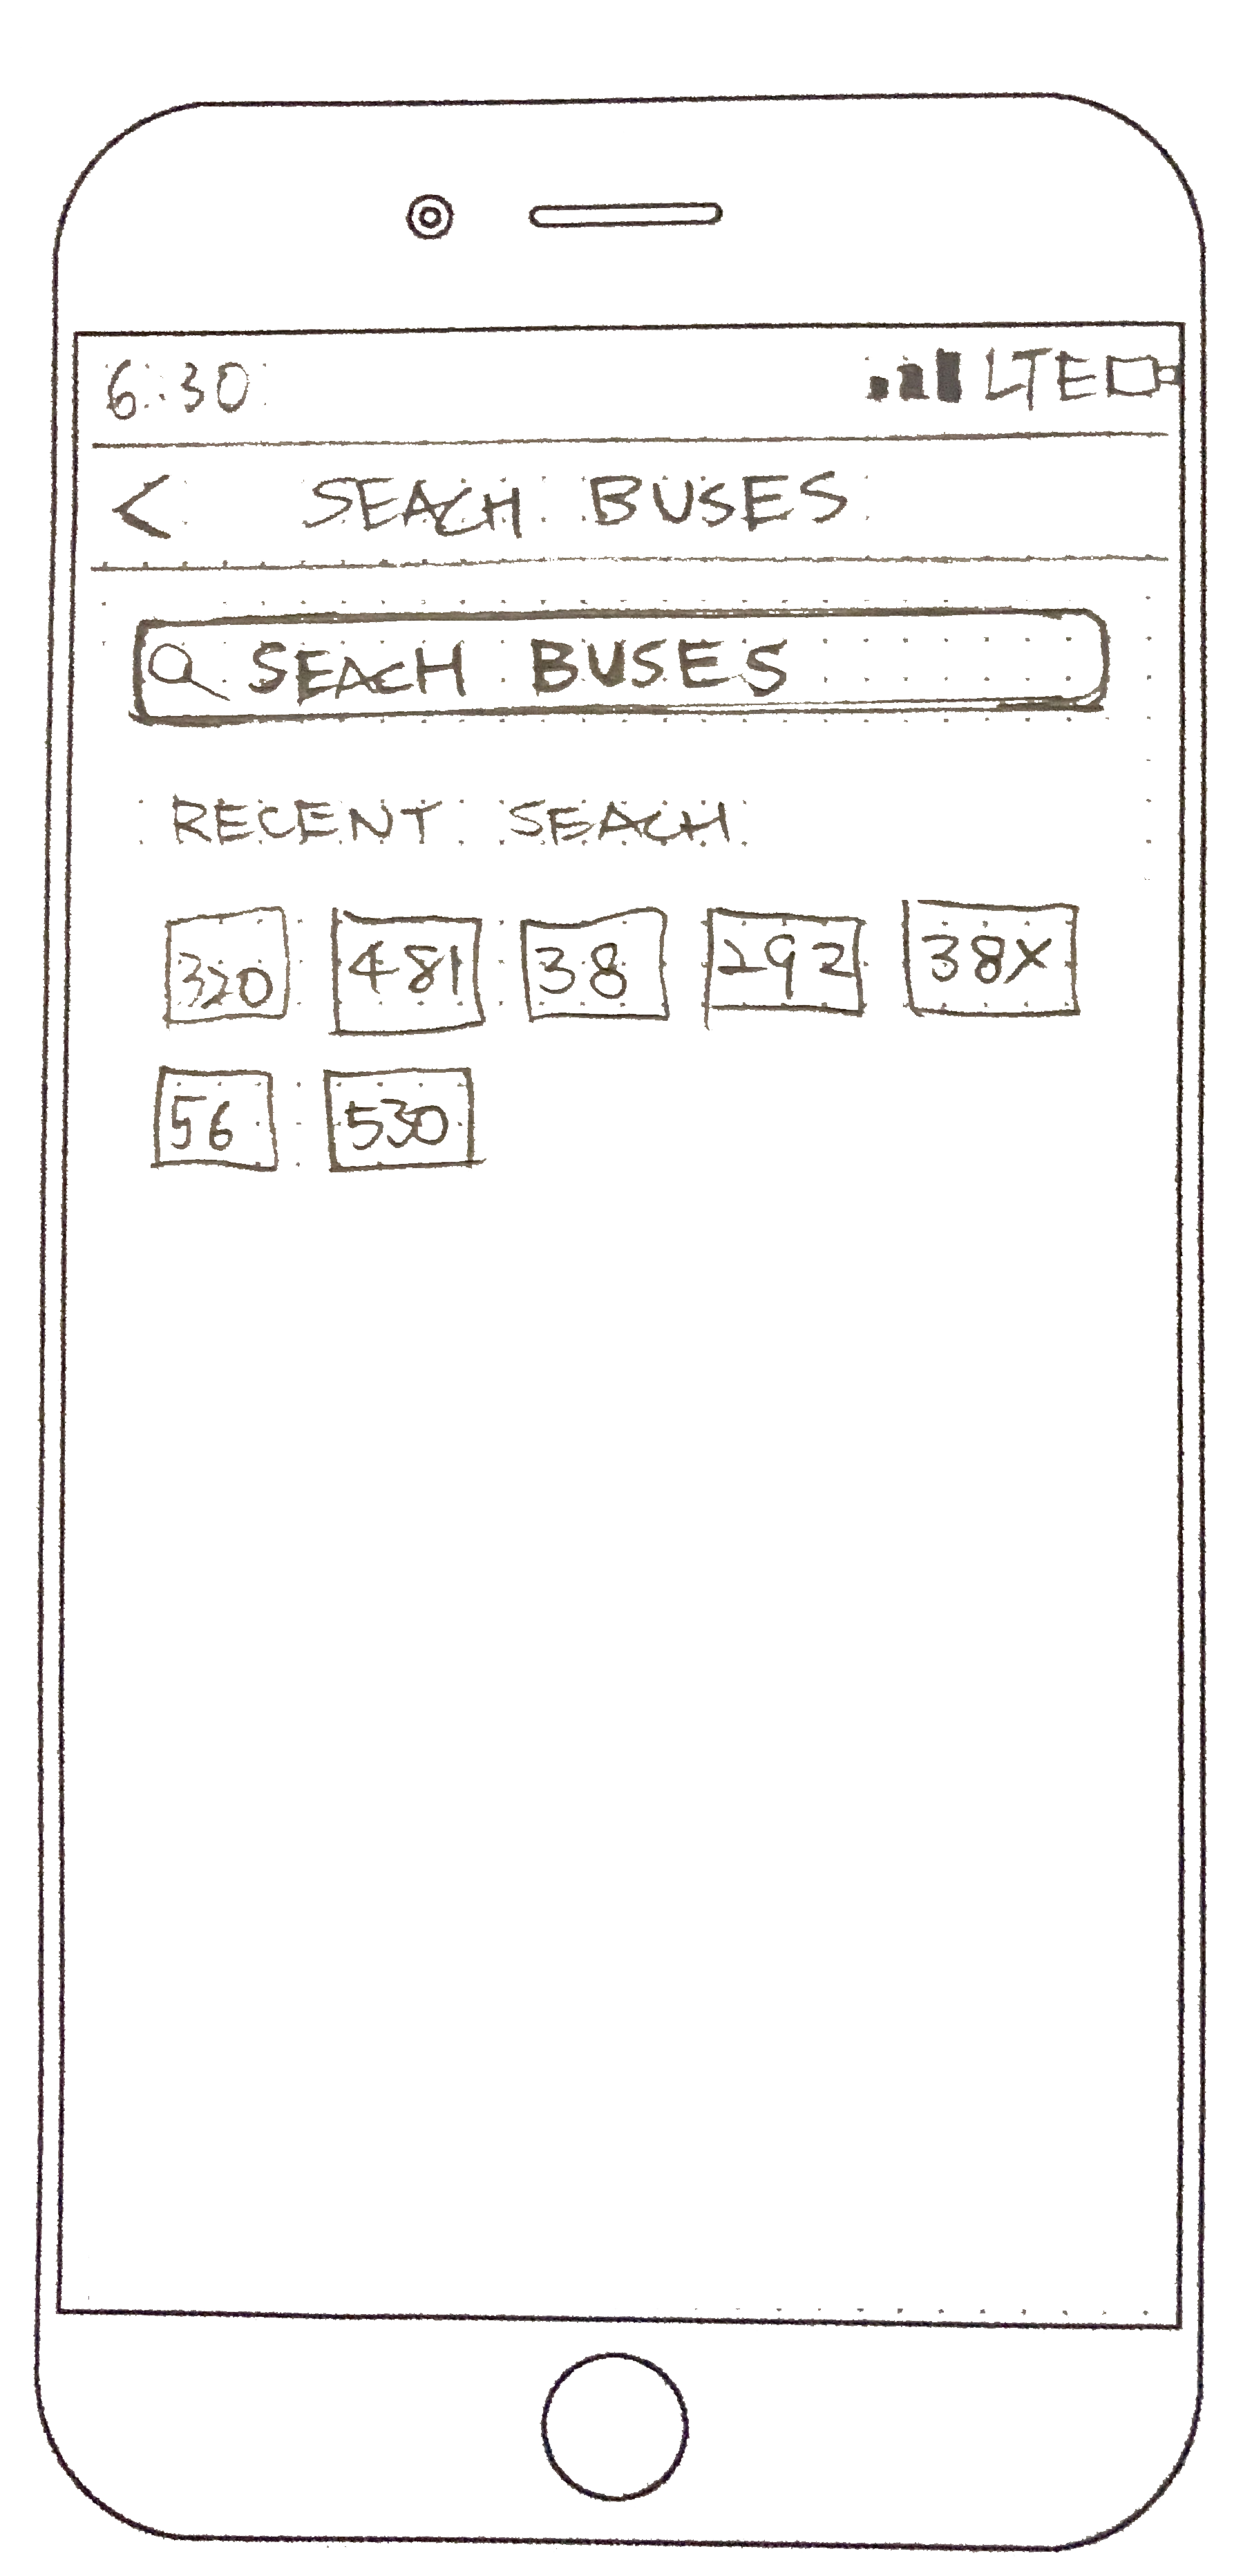 6:30 LTE
< SEACH BUSES
SEACH BUSES
RECENT SEACH
320 481 38 292 38X
56 530